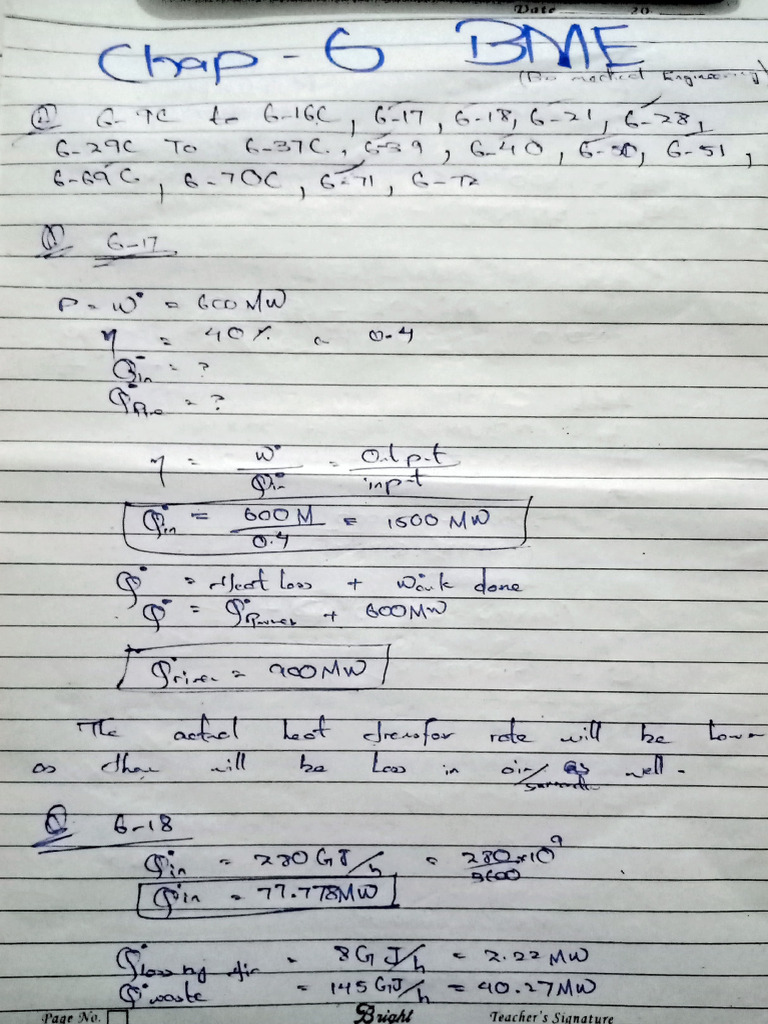 Date 20
Chap - 6 BME
(Bio medical Engineering)
Q 6-9C to 6-16C, 6-17, 6-18, 6-21, 6-28,
6-29C To 6-37C, 6-39, 6-40, 6-50, 6-51,
6-69C, 6-70C, 6-71, 6-72
Q 6-17
P = W° = 600 MW
η = 40% = 0.4
Q°in = ?
Q° = ?
η = W°/Q°in = Output/input
Q°in = 600M/0.4 = 1500 MW
Q° = Heat Loss + Work done
Q° = Q° + 600MW
Q°river = 900MW
The actual heat transfer rate will be lower
as there will be Loss in air/ as well.
Q 6-18
Q°in = 280 GJ/h = 280×10⁹/3600
Q°in = 77.778MW
Q° Loss by Air = 8GJ/h = 2.22 MW
Q° waste = 145 GJ/h = 40.27MW
Page No. Bright Teacher's Signature